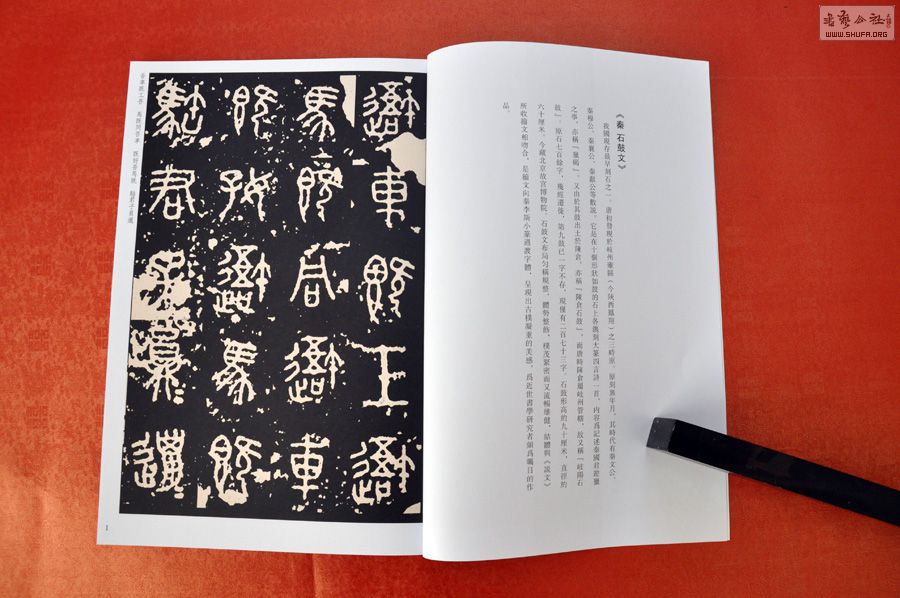 《秦 石鼓文》
我國現存最早刻石之一。唐初發現於岐州雍縣（今陝西鳳翔）之三畤原，原刻無年月，其時代有秦文公、
秦穆公、秦襄公、秦獻公等數說。它是在十個形狀如鼓的石上各鐫刻大篆四言詩一首，內容爲記述秦國君遊獵
之事，亦稱『獵碣』。又由於其鼓出土於陳倉，亦稱『陳倉石鼓』，而唐時陳倉屬岐州管轄，故又稱『岐陽石
鼓』。原石七百餘字，幾經遷徙，第九鼓已一字不存，現僅有二百七十三字。石鼓形高約九十厘米，直徑約
六十厘米。今藏北京故宮博物院。石鼓文布局勻稱規整，體勢整飭，樸茂緊密而又流暢雄健，結體與《說文》
所收籀文相吻合，是籀文向秦李斯小篆過渡字體，呈現出古樸凝重的美感，爲近世書學研究者頗爲矚目的作
品。
車既工
馬既同車
既好馬既
君子員邋
吾車既工吾 馬既同吾車 既好吾馬既 君子員邋
1
書藝公社
WWW.SHUFA.ORG